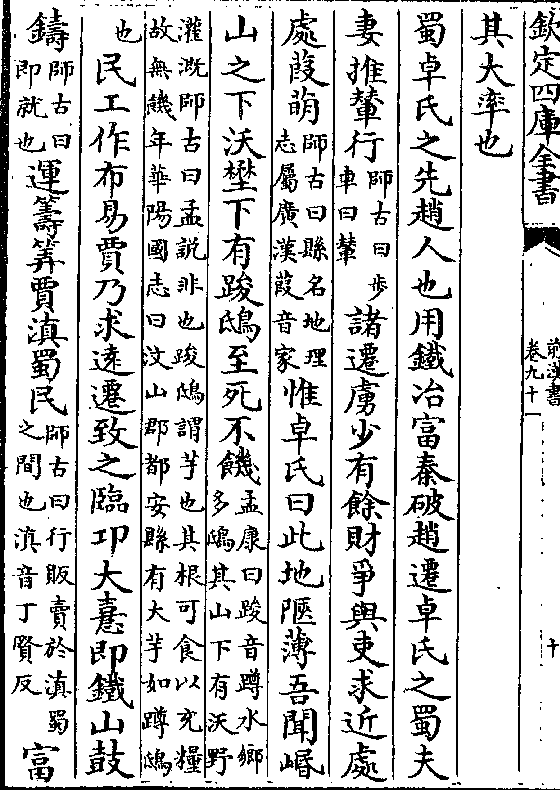 欽定四庫全書
前漢書
卷九十一
十
其大率也
蜀卓氏之先趙人也用鐵冶富秦破趙遷卓氏之蜀夫
妻推輦行師古曰歩車曰輦諸遷虜少有餘財爭與吏求近處
處葭萌師古曰縣名地理志屬廣漢葭音家惟卓氏曰此地陿薄吾聞㟭
山之下沃壄下有踆鴟至死不饑孟康曰踆音蹲水鄉多鴟其山下有沃野
灌溉師古曰孟說非也踆鴟謂芋也其根可食以充糧故無饑年華陽國志曰汶山郡都安縣有大芋如蹲鴟
也民工作布易賈乃求遠遷致之臨卭大憙即鐵山鼓
鑄師古曰即就也運籌筭賈滇蜀民師古曰行販賣於滇蜀之間也滇音丁賢反富